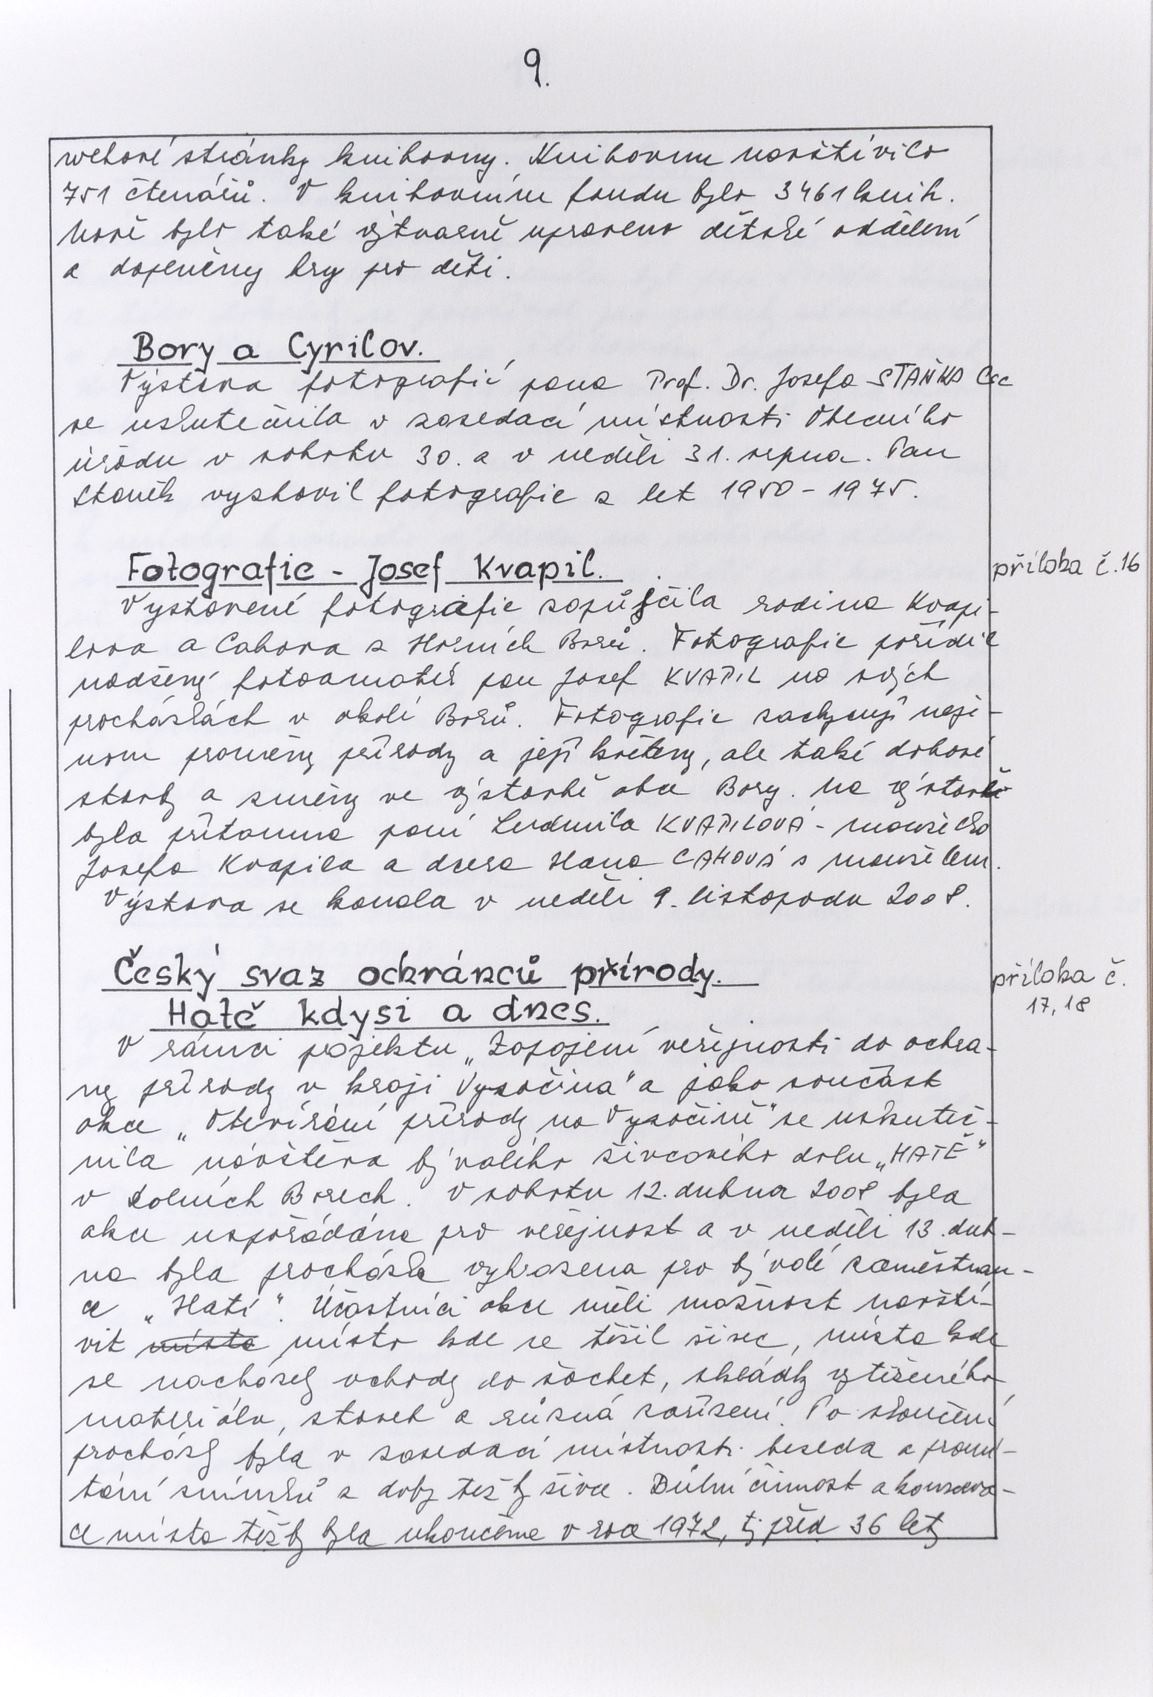 9.
webové stránky knihovny. Knihovnu navštívilo
751 čtenářů. V knihovním fondu bylo 3461 knih.
Nově bylo také výtvarně upraveno dětské oddělení
a doplněny hry pro děti.
Bory a Cyrilov.
Výstava fotografií pana Prof. Dr. Josefa STAŇKA Csc
se uskutečnila v zasedací místnosti Obecního
úřadu v sobotu 30. a v neděli 31. srpna. Pan
Staněk vystavil fotografie z let 1950 - 1975.
Fotografie - Josef Kvapil.
příloha č. 16
Vystavené fotografie zapůjčila rodina Kvapi-
lova a Cahova z Horních Borů. Fotografie pořídil
nadšený fotoamatér pan Josef KVAPIL na svých
procházkách v okolí Borů. Fotografie zachycují neje-
nom proměny přírody a její květeny, ale také dobové
stavby a změny ve výstavbě obce Bory. Na výstavě
byla přítomna paní Ludmila KVAPILOVÁ - manželka
Josefa Kvapila a dcera Hana CAHOVÁ s manželem.
Výstava se konala v neděli 9. listopadu 2008.
Český svaz ochránců přírody.
příloha č.
17, 18
Hatě kdysi a dnes.
V rámci projektu „Zapojení veřejnosti do ochra-
ny přírody v kraji Vysočina" a jako součást
akce „Otevírání přírody na Vysočině" se uskuteč-
nila návštěva bývalého živcového dolu „HATĚ"
v Dolních Borech. V sobotu 12. dubna 2008 byla
akce uspořádána pro veřejnost a v neděli 13. dub-
na byla procházka vyhrazena pro bývalé zaměstnan-
ce „Hatí". Účastníci akce měli možnost navští-
vit místa místo kde se těžil živec, místa kde
se nacházely vchody do šachet, skládky vytěženého
materiálu, staveb a různá zařízení. Po skončení
procházky byla v zasedací místnosti beseda a promí-
tání snímků z doby těžby živce. Důlní činnost a konzerva-
ce místa těžby byla ukončena v roce 1972, tj před 36 lety